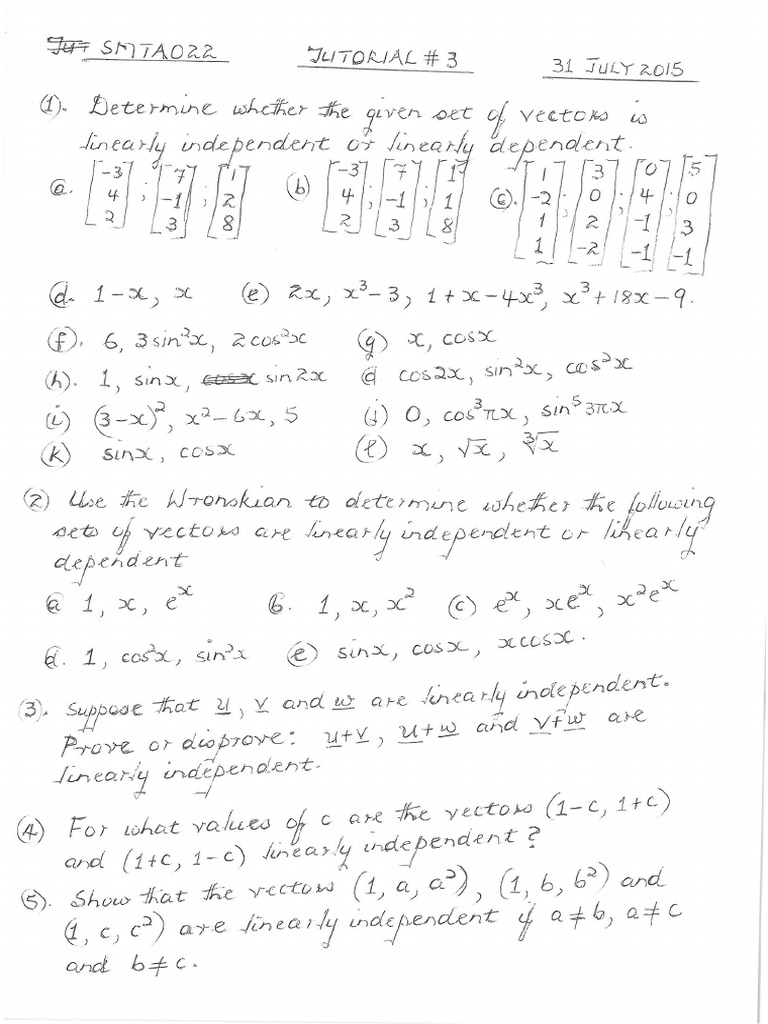 SMTA022 TUTORIAL # 3 31 JULY 2015
(1). Determine whether the given set of vectors is
linearly independent or linearly dependent.
a. [-3 4 2]; [7 -1 3]; [1 2 8] (b) [-3 4 2]; [7 -1 3]; [1 1 8] (c). [1 -2 1 1]; [3 0 2 -2]; [0 4 -1 -1]; [5 0 3 -1]
d. 1-x, x (e) 2x, x³-3, 1+x-4x³, x³+18x-9.
(f). 6, 3sin²x, 2cos²x (g) x, cosx
(h). 1, sinx, sin2x d cos2x, sin²x, cos²x
(i) (3-x)², x²-6x, 5 (j) 0, cos³πx, sin⁵3πx
(k) sinx, cosx (l) x, √x, ∛x
(2) Use the Wronskian to determine whether the following
sets of vectors are linearly independent or linearly
dependent
a 1, x, eˣ b. 1, x, x² (c) eˣ, xeˣ, x²eˣ
d. 1, cos²x, sin²x (e) sinx, cosx, xcosx.
(3). Suppose that u, v and w are linearly independent.
Prove or disprove: u+v, u+w and v+w are
linearly independent.
(4) For what values of c are the vectors (1-c, 1+c)
and (1+c, 1-c) linearly independent?
(5). Show that the vectors (1, a, a²), (1, b, b²) and
(1, c, c²) are linearly independent if a≠b, a≠c
and b≠c.